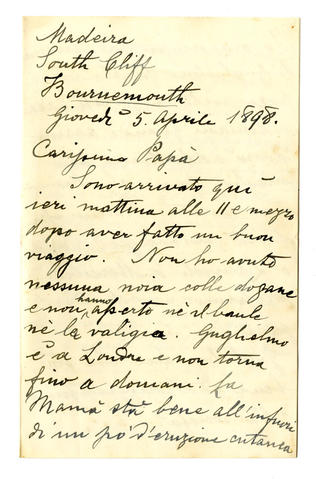 Madeira
South Cliff
Bournemouth
Giovedì 5. Aprile 1898.
Carissimo Papà
Sono arrivato quì
ieri mattina alle 11 e mezzo
dopo aver fatto un buon
viaggio. Non ho avuto
nessuna noia colle dogane
e non hanno aperto nè il baule
nè la valigia. Guglielmo
è a Londra e non torna
fino a domani. La
Mamà stà bene all'infuori
di un pò d'eruzione cutanea